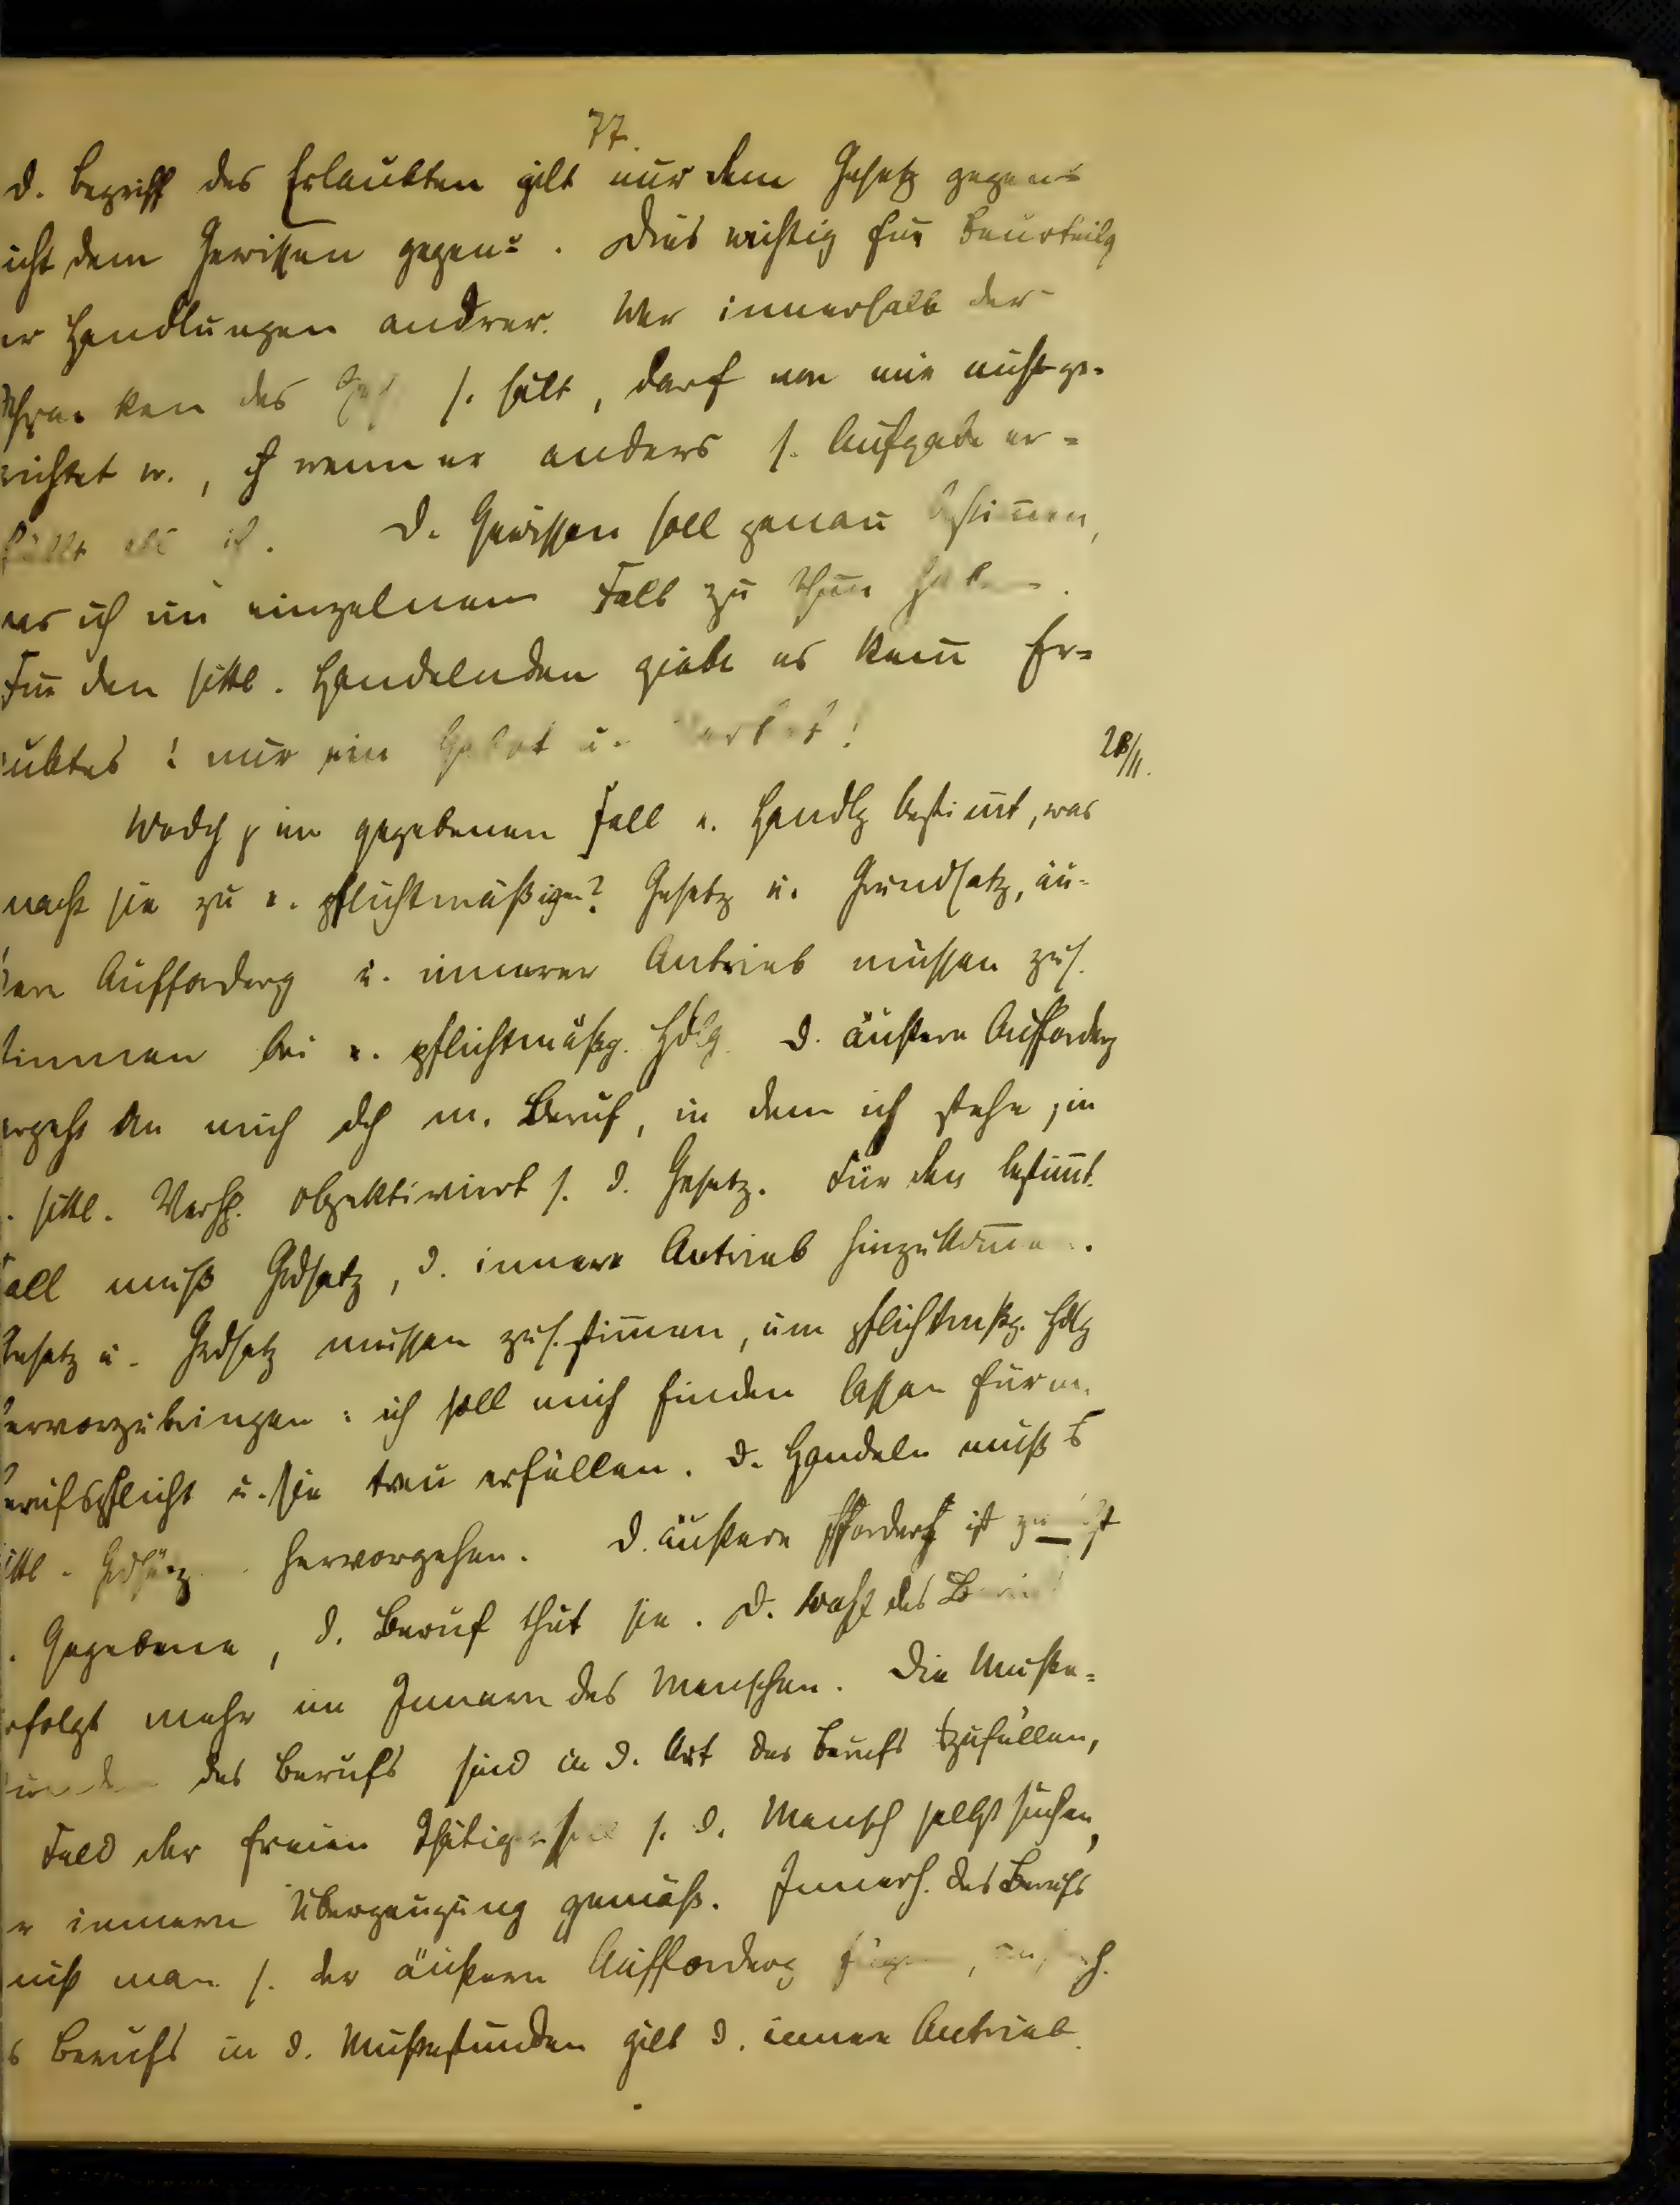 77.
d. Begriff des Erlaubten gilt nur dem Gesetz gegen-
icht dem Gewissen gegen-. Dies wichtig für Beurteilg
er Handlungen andrer. Wer innerhalb der
Schranken des s. hält, darf von mir nicht ge-
richtet w., wenn er anders s. Aufgabe er-
füllt als ich. D. Gewissen soll genau bestimmen,
was ich im einzelnen Fall zu thun habe.
Für den sittl. Handelnden giebt es kein Er-
aubtes: nur ein Gebot u. Verbot!
28/11.
Wodch im gegebenen Fall e. Handlg bestimt, was
macht sie zu e. pflichtmäßigen? Gesetz u. Grundsatz, äu-
ßere Aufforderg u. innerer Antrieb müssen zus.
stimmen bei e. pflichtmäßg. Hdlg. D. äußere Aufforderg
ergeht an mich dch m. Beruf, in dem ich stehe; in
. sittl. objektiviert s. d. Gesetz. Für den bestimt.
Fall muß Grdsatz, d. innere Antrieb hinzukommen.
Gesetz u. Grdsatz müssen zus.stimen, um pflichtmßg. Hdlg
hervorzubringen: ich soll mich finden lassen für m.
Berufspflicht u. sie treu erfüllen. D. Handeln muß
sittl. hervorgehen. D. äußere ist
. Gegebene, d. Beruf thut sie. D. Wahl des Berufs
erfolgt mehr im Innern des Menschen. Die Muße-
stunden des Berufs sind in d. Art des Berufs zufüllen,
Feld der freien s. d. Mensch selbst suchen,
r innern Überzeugung gemäß. Innerh. des Berufs
muß man s. der äußern Aufforderg fügen, außerh.
s Berufs in d. Mußestunden gilt d. innere Antrieb.